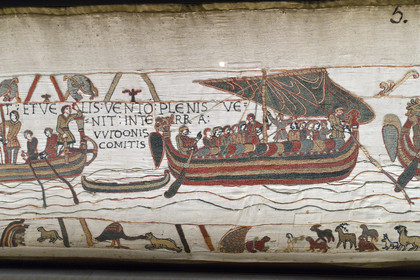 5.
ET VELIS VENTO PLENIS VE
NIT: IN TERRA
VVIDONIS
COMITIS